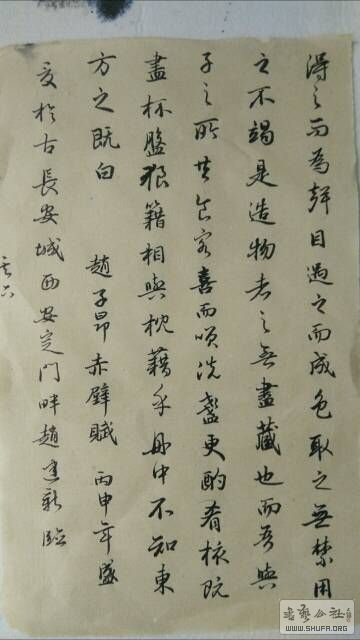 得之而為聲目遇之而成色取之無禁用
之不竭是造物者之無盡藏也而吾與
子之所共食客喜而咲洗盞更酌肴核既
盡杯盤狼籍相與枕藉乎舟中不知東
方之既白 趙子昂赤壁賦 丙申年盛
夏於古長安城西安定門畔趙建新臨
书法公社
WWW.SHUFA.ORG